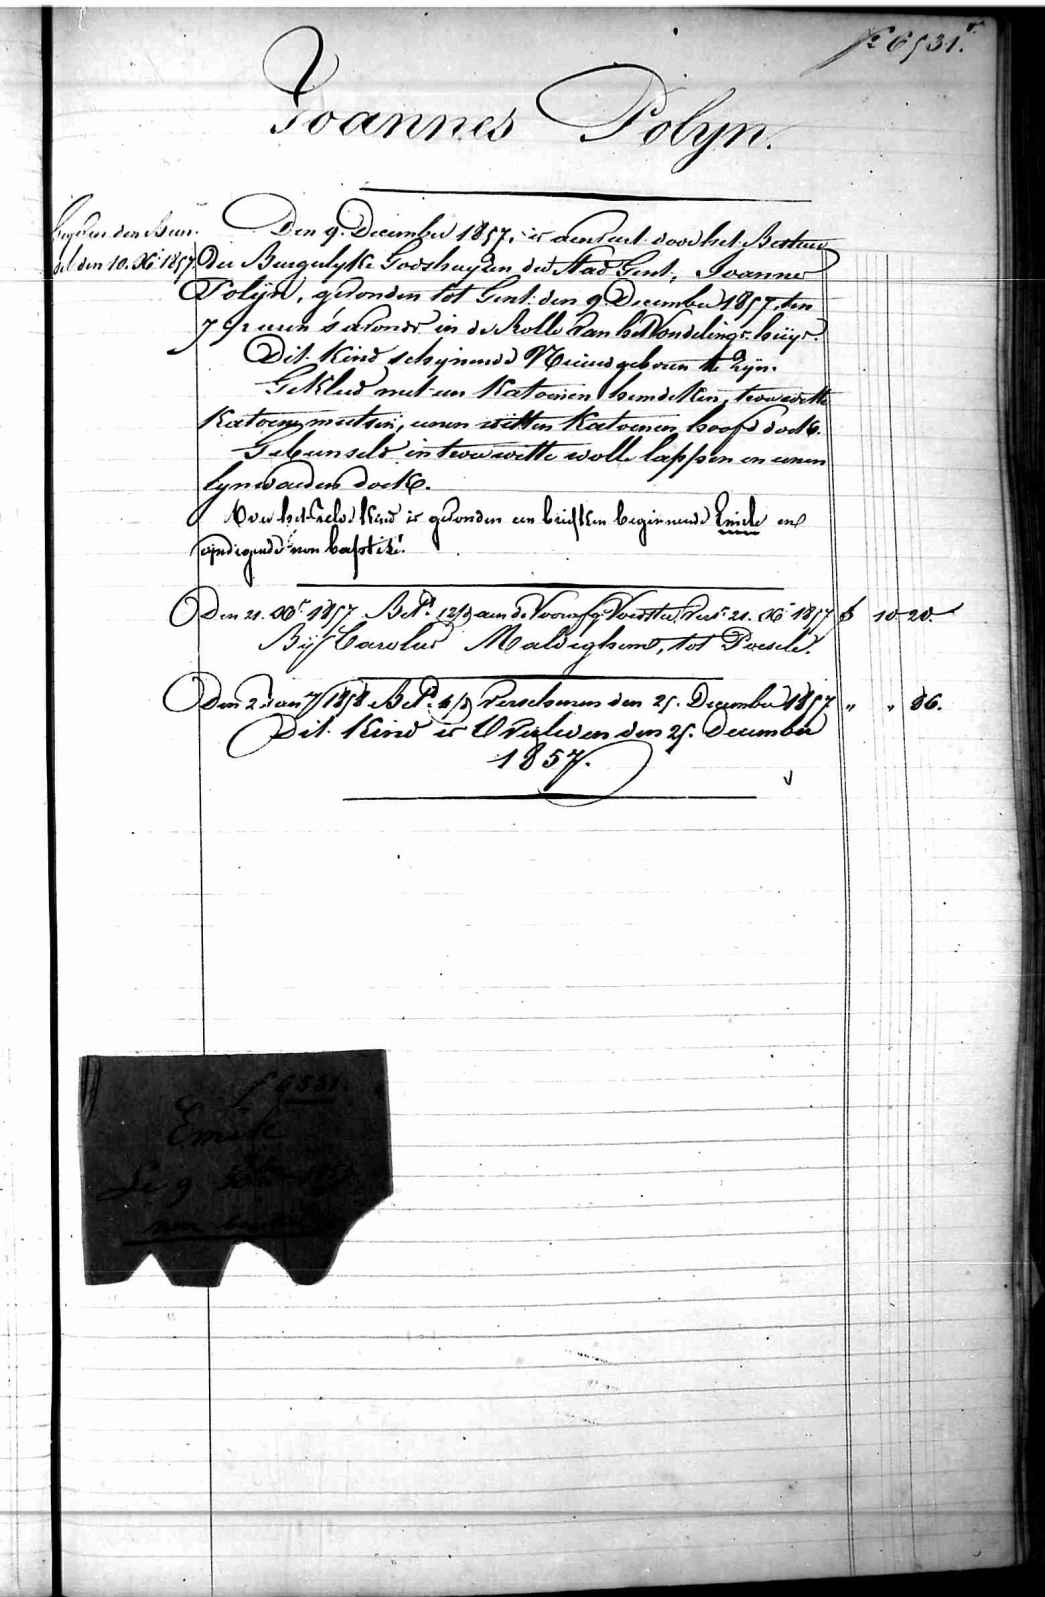 fº 6531.
Joannes Polyn.
den 10. Xbr 1857
Den 9. December 1857, is aenveert door het Bestuer
der Burgerlyke Godshuyzen der Stad Gent, Joannes
Polijn, gevonden tot Gent den 9. December 1857 ten
7 uren 's avonds in de Rolle van het Vondelings-huys.
Dit Kind schynende Nieuwgeboren te zyn.
Gekleed met een Katoenen hemdeken, twee witte
Katoene mutsen, eenen witten Katoenen hoofd doek.
Gebunseld in twee witte wolle lappen en eenen
lynwaeden doek.
Over het zelve Kind is gevonden een briefken beginnende Emile en
eyndigende non baptisé.
Den 21. Xbr 1857 aen de Voedster 21. Xbr 1857 10 20.
Bij Carolus Maldeghem, tot Poesele.
Den 2 Jany 1858 Verschenen den 25. December 1857 " " 86.
Dit Kind is Overleden den 25. December
1857.
f 6531.
Emile
Le 9
non